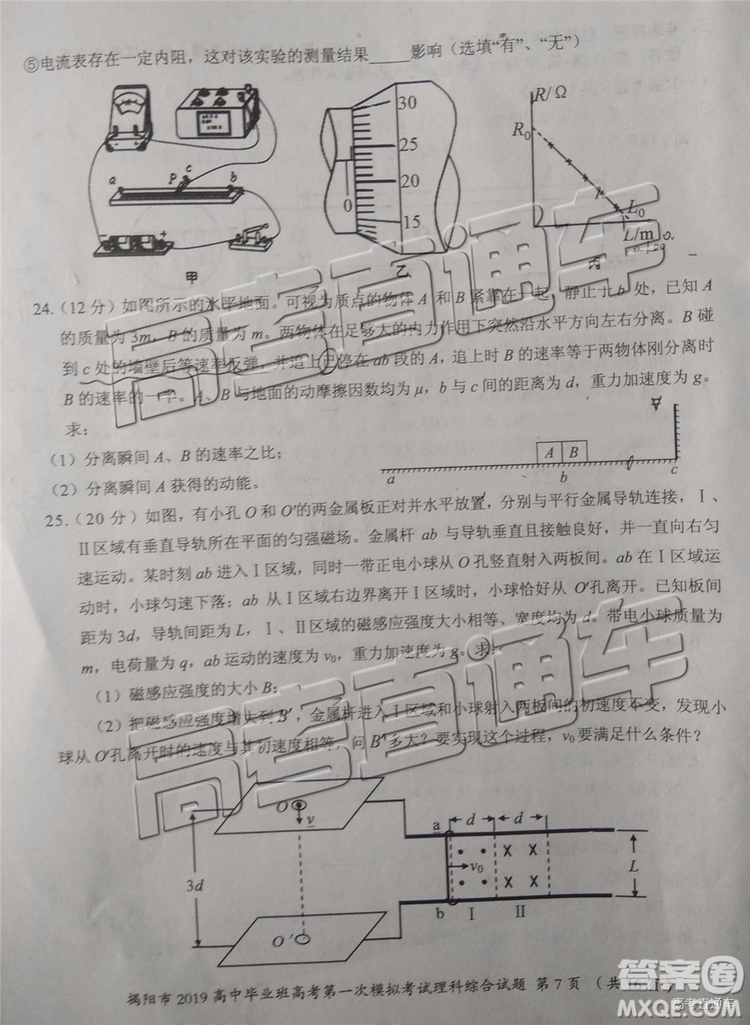 ⑤电流表存在一定内阻，这对该实验的测量结果_____影响（选填“有”、“无”）
30
25
20
15
0
a
P
c
b
甲
乙
R/Ω
R₀
L₀
L/m
丙
24.（12 分）如图所示的水平地面。可视为质点的物体 A 和 B 紧靠在一起，静止于 b 处，已知 A
的质量为 3m，B 的质量为 m。两物体在足够大的内力作用下突然沿水平方向左右分离。B 碰
到 c 处的墙壁后等速率反弹，并追上已停在 ab 段的 A，追上时 B 的速率等于两物体刚分离时
B 的速率的一半。A、B 与地面的动摩擦因数均为 μ，b 与 c 间的距离为 d，重力加速度为 g。
求：
（1）分离瞬间 A、B 的速率之比；
（2）分离瞬间 A 获得的动能。
A B
a b c
25.（20 分）如图，有小孔 O 和 O′的两金属板正对并水平放置，分别与平行金属导轨连接，Ⅰ、
Ⅱ区域有垂直导轨所在平面的匀强磁场。金属杆 ab 与导轨垂直且接触良好，并一直向右匀
速运动。某时刻 ab 进入Ⅰ区域，同时一带正电小球从 O 孔竖直射入两板间。ab 在Ⅰ区域运
动时，小球匀速下落；ab 从Ⅰ区域右边界离开Ⅰ区域时，小球恰好从 O′孔离开。已知板间
距为 3d，导轨间距为 L，Ⅰ、Ⅱ区域的磁感应强度大小相等、宽度均为 d。带电小球质量为
m，电荷量为 q，ab 运动的速度为 v₀，重力加速度为 g。求：
（1）磁感应强度的大小 B；
（2）把磁感应强度增大到 B′，金属杆进入Ⅰ区域和小球射入两板间的初速度不变，发现小
球从 O′孔离开时的速度与其初速度相等，问 B′多大？要实现这个过程，v₀要满足什么条件？
O
v
3d
O′
a
d
d
v₀
L
b
Ⅰ
Ⅱ
揭阳市 2019 高中毕业班高考第一次模拟考试理科综合试题 第 7 页 （共
高考直通车
答案圈
MXQE.COM
高考直通车